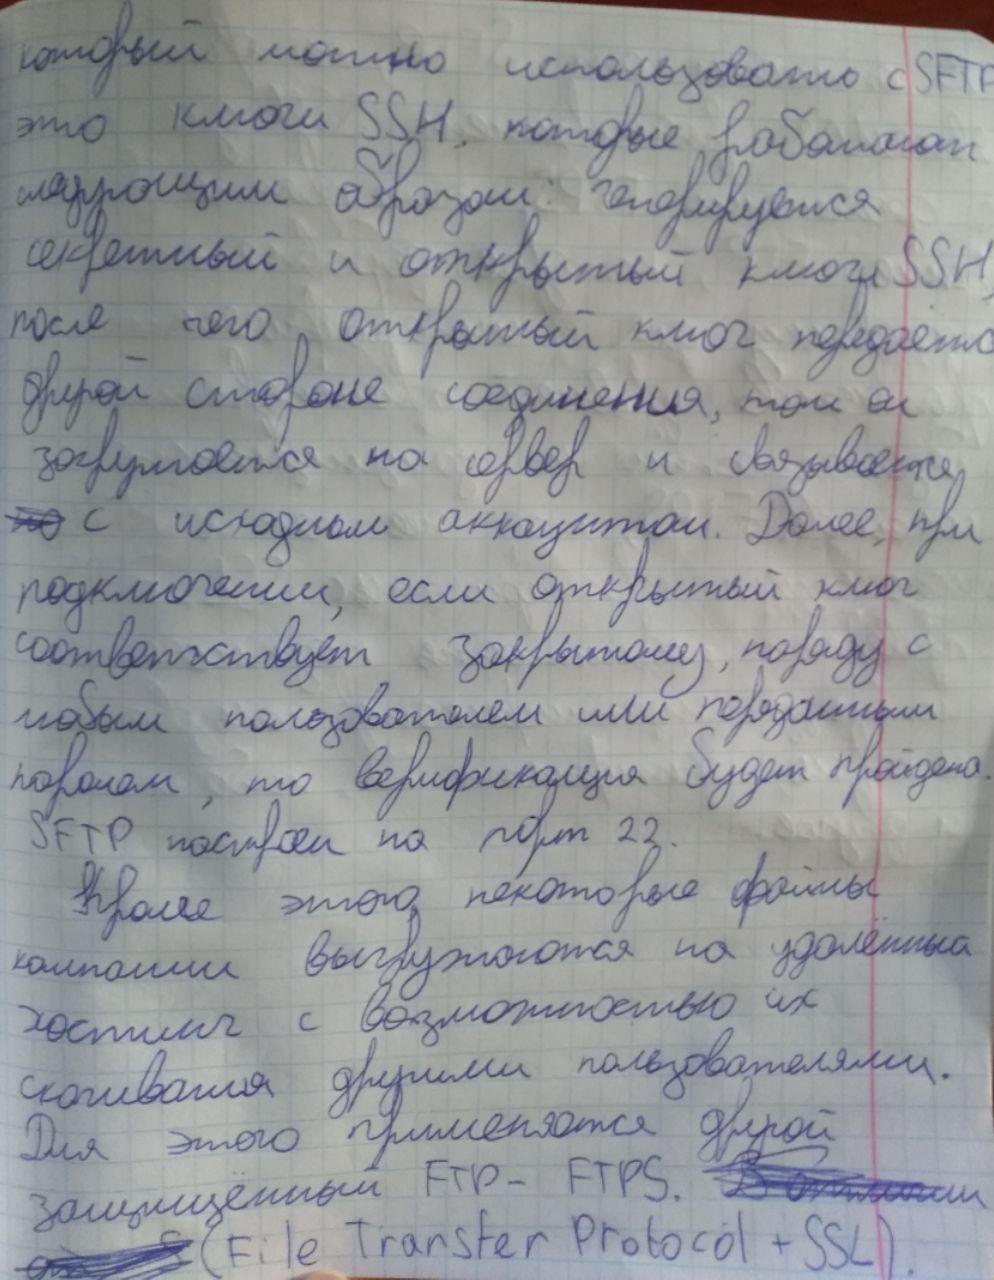 который можно использовать с SFTP
это ключи SSH, которые работают
следующим образом: генерируется
секретный и открытый ключи SSH,
после чего открытый ключ передаётся
другой стороне соединения, там он
загружается на сервер и связывается
с исходным аккаунтом. Далее, при
подключении, если открытый ключ
соответствует закрытому, наряду с
любым пользователем или переданным
паролем, то верификация будет пройдена.
SFTP настроен на порт 22.
Кроме этого, некоторые файлы
компании выгружаются на удалённый
хостинг с возможностью их
скачивания другими пользователями.
Для этого применяется другой
защищённый FTP - FTPS.
(File Transfer Protocol + SSL).